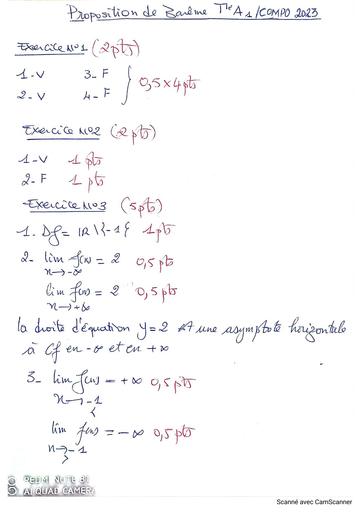 Proposition de Barême Tle A1/COMPO 2023
Exercice N°1 (2pts)
1-V 3-F } 0,5x4pts
2-V 4-F
Exercice N°2 (2pts)
1-V 1pts
2-F 1pts
Exercice N°3 (5pts)
1. Df = IR\{-1} 1pts
2- lim f(x) = 2 0,5pts
x→-∞
lim f(x) = 2 0,5pts
x→+∞
la droite d'équation y=2 est une asymptote horizontale
à Cf en -∞ et en +∞
3- lim f(x) = +∞ 0,5pts
x→-1
<
lim f(x) = -∞ 0,5pts
x→-1
>
REDMI NOTE 8T
AI QUAD CAMERA
Scanné avec CamScanner